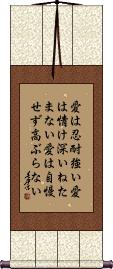 愛は忍耐強い愛
は情け深いねた
まない愛は自慢
せず高ぶらない